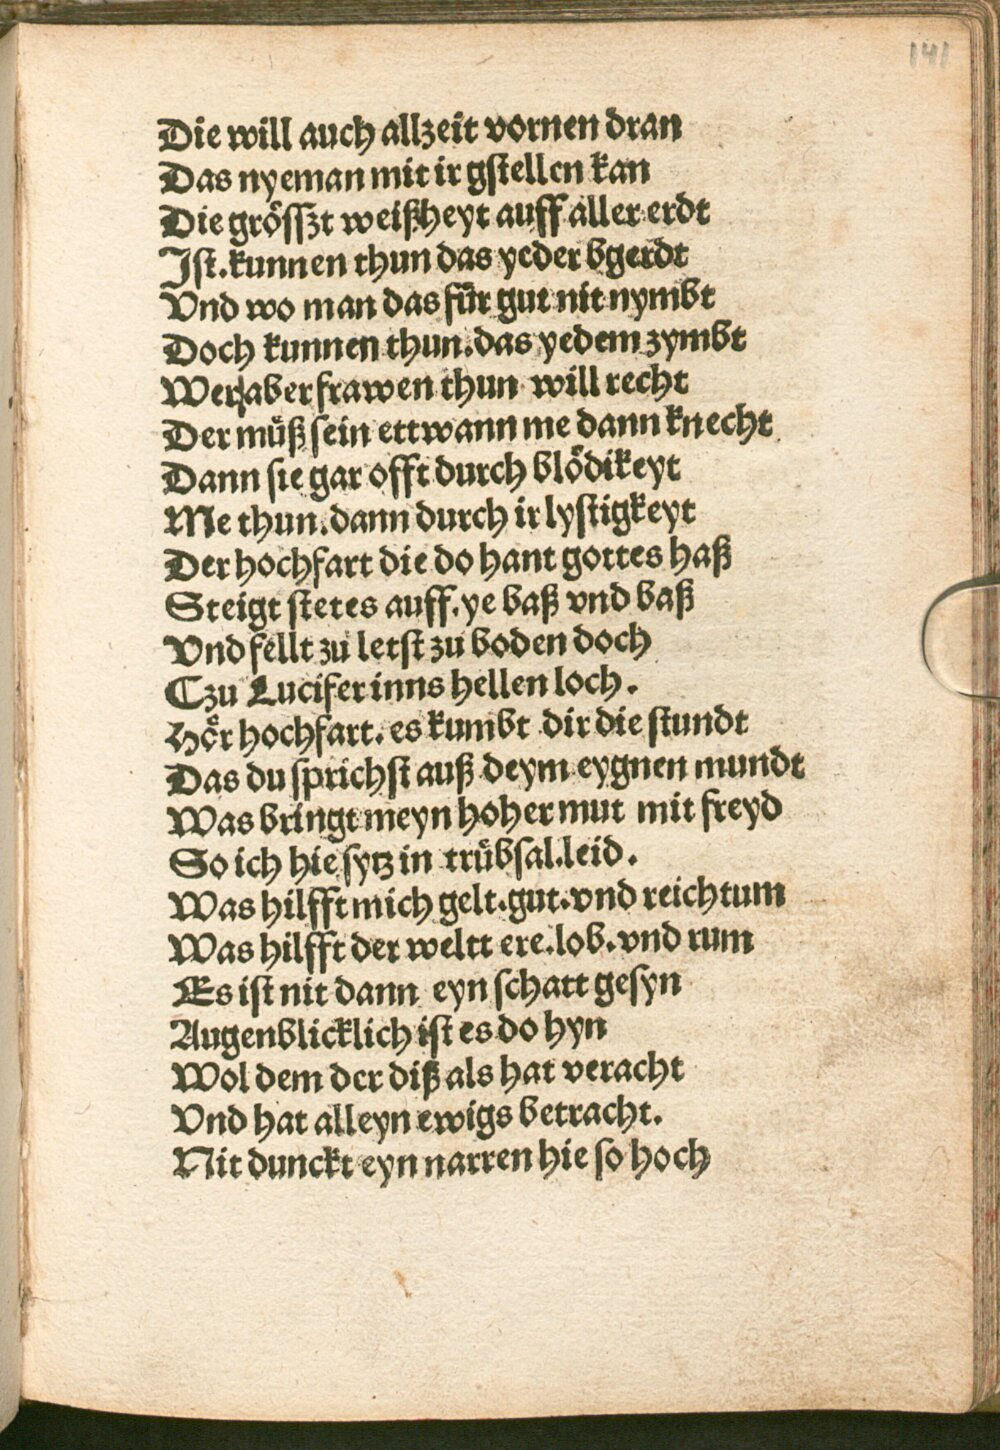 141
Die will auch allzeit vornen dran
Das nyeman mit ir gstellen kan
Die groͤsszt weißheyt auff aller erdt
Ist.kunnen thun das yeder bgerdt
Vnd wo man das für gut nit nymbt
Doch kunnen thun.das yedem zymbt
Wer aber frawen thun will recht
Der muͤß sein ettwann me dann knecht
Dann sie gar offt durch bloͤdikeyt
Me thun.dann durch ir lystigkeyt
Der hochfart die do hant gottes haß
Steigt stetes auff.ye baß vnd baß
Vnd fellt zu letst zu boden doch
Czu Lucifer inns hellen loch.
Hoͤr hochfart.es kumbt dir die stundt
Das du sprichst auß deym eygnen mundt
Was bringt meyn hoher mut mit freyd
So ich hie sytz in truͤbsal.leid.
Was hilfft mich gelt.gut.vnd reichtum
Was hilfft der weltt ere.lob.vnd rum
Es ist nit dann eyn schatt gesyn
Augenblicklich ist es do hyn
Wol dem der diß als hat veracht
Vnd hat alleyn ewigs betracht.
Nit dunckt eyn narren hie so hoch